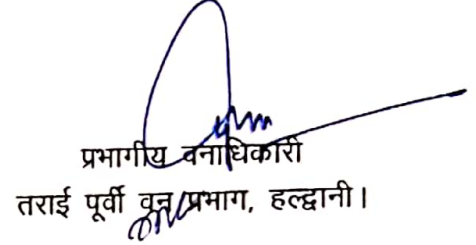 प्रभागीय वनाधिकारी
तराई पूर्वी वन प्रभाग, हल्द्वानी।